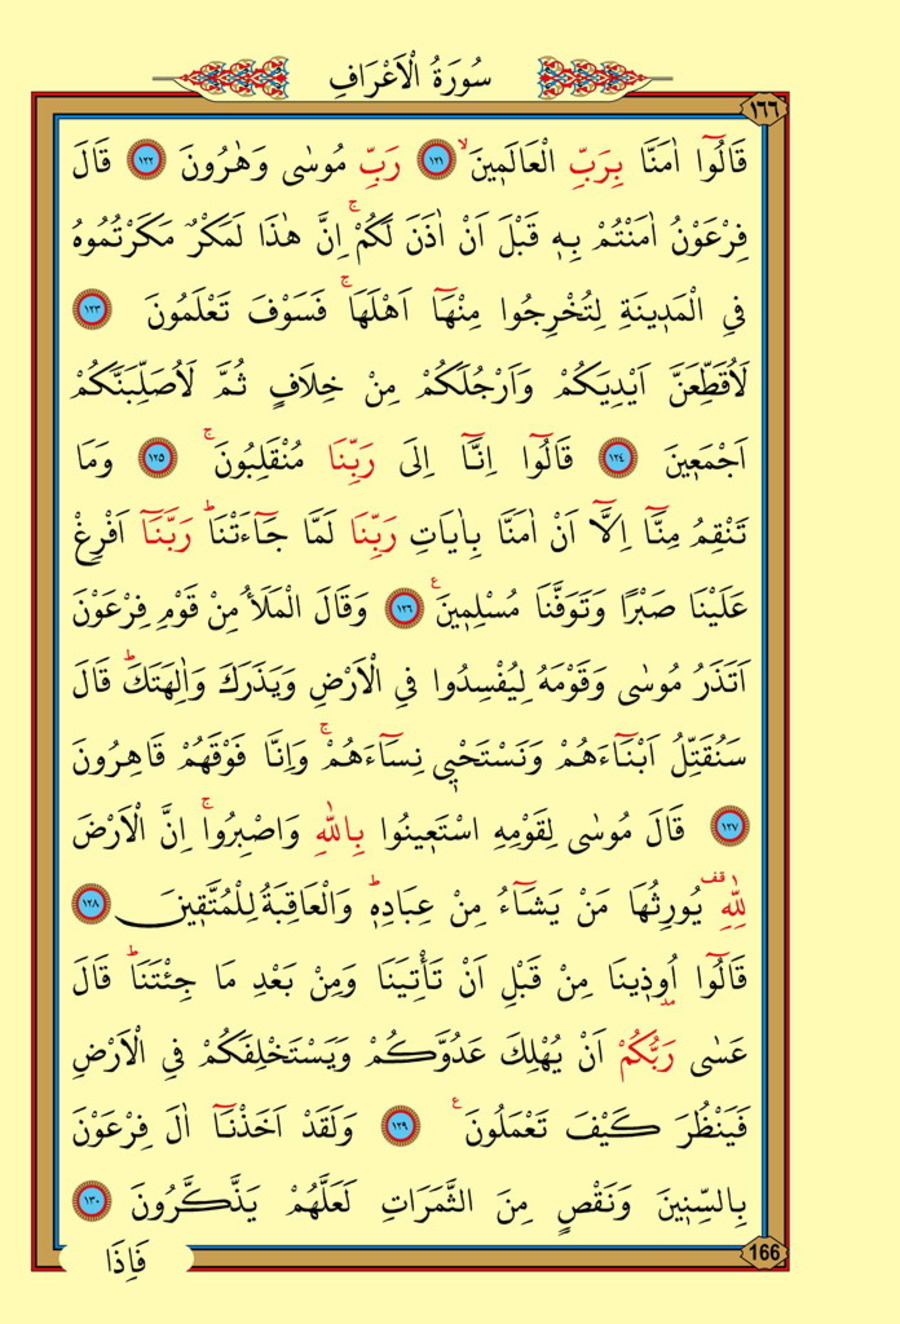 سُورَةُ الْاَعْرَافِ
١٦٦
قَالُٓوا اٰمَنَّا بِرَبِّ الْعَالَم۪ينَۙ ١٢١ رَبِّ مُوسٰى وَهٰرُونَ ١٢٢ قَالَ
فِرْعَوْنُ اٰمَنْتُمْ بِه۪ قَبْلَ اَنْ اٰذَنَ لَكُمْۚ اِنَّ هٰذَا لَمَكْرٌ مَكَرْتُمُوهُ
فِي الْمَد۪ينَةِ لِتُخْرِجُوا مِنْهَٓا اَهْلَهَاۚ فَسَوْفَ تَعْلَمُونَ ١٢٣
لَاُقَطِّعَنَّ اَيْدِيَكُمْ وَاَرْجُلَكُمْ مِنْ خِلَافٍ ثُمَّ لَاُصَلِّبَنَّكُمْ
اَجْمَع۪ينَ ١٢٤ قَالُٓوا اِنَّٓا اِلٰى رَبِّنَا مُنْقَلِبُونَۚ ١٢٥ وَمَا
تَنْقِمُ مِنَّٓا اِلَّٓا اَنْ اٰمَنَّا بِاٰيَاتِ رَبِّنَا لَمَّا جَٓاءَتْنَاۜ رَبَّنَٓا اَفْرِغْ
عَلَيْنَا صَبْرًا وَتَوَفَّنَا مُسْلِم۪ينَ۟ ١٢٦ وَقَالَ الْمَلَأُ مِنْ قَوْمِ فِرْعَوْنَ
اَتَذَرُ مُوسٰى وَقَوْمَهُ لِيُفْسِدُوا فِي الْاَرْضِ وَيَذَرَكَ وَاٰلِهَتَكَۜ قَالَ
سَنُقَتِّلُ اَبْنَٓاءَهُمْ وَنَسْتَحْي۪ نِسَٓاءَهُمْۚ وَاِنَّا فَوْقَهُمْ قَاهِرُونَ
١٢٧ قَالَ مُوسٰى لِقَوْمِهِ اسْتَع۪ينُوا بِاللّٰهِ وَاصْبِرُواۚ اِنَّ الْاَرْضَ
لِلّٰهِ۠ يُورِثُهَا مَنْ يَشَٓاءُ مِنْ عِبَادِه۪ۜ وَالْعَاقِبَةُ لِلْمُتَّق۪ينَ ١٢٨
قَالُٓوا اُو۫ذ۪ينَا مِنْ قَبْلِ اَنْ تَأْتِيَنَا وَمِنْ بَعْدِ مَا جِئْتَنَاۜ قَالَ
عَسٰى رَبُّكُمْ اَنْ يُهْلِكَ عَدُوَّكُمْ وَيَسْتَخْلِفَكُمْ فِي الْاَرْضِ
فَيَنْظُرَ كَيْفَ تَعْمَلُونَ۟ ١٢٩ وَلَقَدْ اَخَذْنَٓا اٰلَ فِرْعَوْنَ
بِالسِّن۪ينَ وَنَقْصٍ مِنَ الثَّمَرَاتِ لَعَلَّهُمْ يَذَّكَّرُونَ ١٣٠
166
فَاِذَا